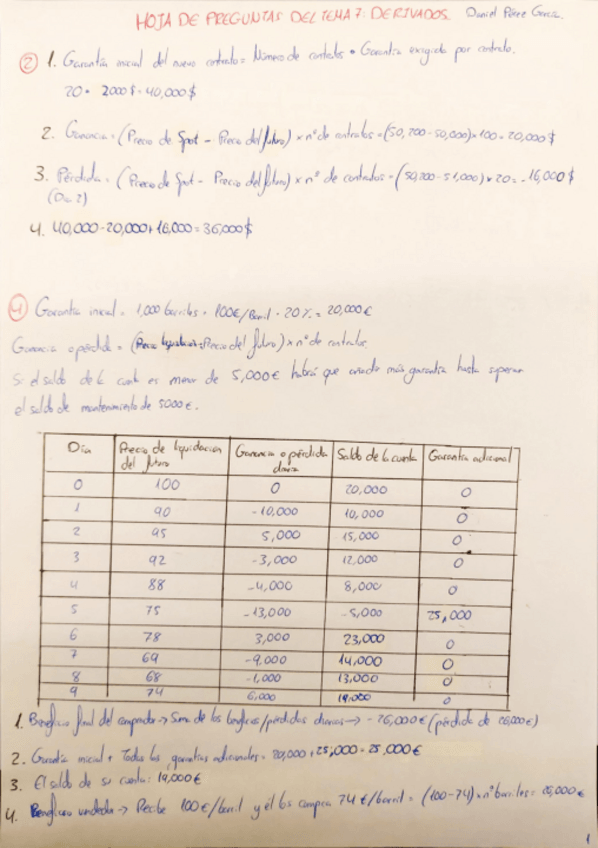 HOJA DE PREGUNTAS DEL TEMA 7: DERIVADOS. Daniel Pérez García.
② 1. Garantía inicial del nuevo contrato = Número de contratos • Garantía exigida por contrato.
20 • 2000$ = 40,000$
2. Ganancia = (Precio de Spot - Precio del futuro) × nº de contratos = (50,200-50,000)×100 = 20,000$
3. Pérdida = (Precio de Spot - Precio del futuro) × nº de contratos = (50,200-51,000)×20 = -16,000$
(Día 2)
4. 40,000-20,000+16,000=36,000$
④ Garantía inicial = 1,000 barriles • 100€/Barril • 20% = 20,000€
Ganancia o pérdida = (Precio liquidación - Precio del futuro) × nº de contratos.
Si el saldo de la cuenta es menor de 5,000€ habrá que añadir más garantía hasta superar
el saldo de mantenimiento de 5000€.
Día Precio de liquidación del futuro Ganancia o pérdida diaria Saldo de la cuenta Garantía adicional
0 100 0 20,000 0
1 90 -10,000 10,000 0
2 95 5,000 15,000 0
3 92 -3,000 12,000 0
4 88 -4,000 8,000 0
5 75 -13,000 -5,000 25,000
6 78 3,000 23,000 0
7 69 -9,000 14,000 0
8 68 -1,000 13,000 0
9 74 6,000 19,000 0
1. Beneficio final del comprador → Suma de los beneficios/pérdidas diarios → -26,000€ (pérdida de 26,000€)
2. Garantía inicial + Todas las garantías adicionales = 20,000 + 25,000 = 25,000€
3. El saldo de su cuenta: 19,000€
4. Beneficio vendedor → Recibe 100€/barril y él los compra 74€/barril = (100-74)×nº barriles = 26,000€
1